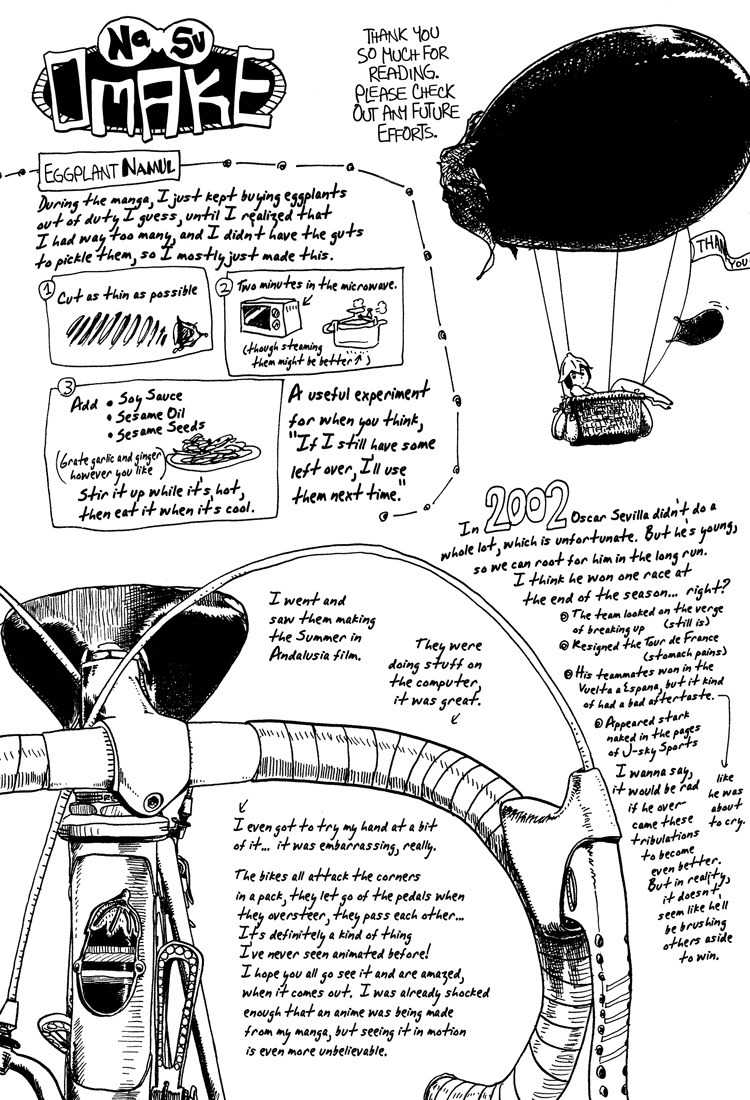 Na Su
OMAKE
THANK YOU
SO MUCH FOR
READING.
PLEASE CHECK
OUT ANY FUTURE
EFFORTS.
THANK
YOU
EGGPLANT NAMUL
During the manga, I just kept buying eggplants
out of duty I guess, until I realized that
I had way too many, and I didn't have the guts
to pickle them, so I mostly just made this.
1
Cut as thin as possible
2
Two minutes in the microwave.
(though steaming
them might be better↑)
3
Add • Soy Sauce
• Sesame Oil
• Sesame Seeds
(Grate garlic and ginger
however you like)
Stir it up while it's hot,
then eat it when it's cool.
A useful experiment
for when you think,
"If I still have some
left over, I'll use
them next time."
In 2002 Oscar Sevilla didn't do a
whole lot, which is unfortunate. But he's young,
so we can root for him in the long run.
I think he won one race at
the end of the season... right?
◎ The team looked on the verge
of breaking up (still is)
◎ Resigned the Tour de France
(stomach pains)
◎ His teammates won in the
Vuelta a Espana, but it kind
of had a bad aftertaste.
◎ Appeared stark
naked in the pages
of J-sky Sports
like
he was
about
to cry.
I wanna say,
it would be rad
if he over-
came these
tribulations
to become
even better.
But in reality,
it doesn't
seem like he'll
be brushing
others aside
to win.
I went and
saw them making
the Summer in
Andalusia film.
They were
doing stuff on
the computer,
it was great.
I even got to try my hand at a bit
of it... it was embarrassing, really.
The bikes all attack the corners
in a pack, they let go of the pedals when
they oversteer, they pass each other...
It's definitely a kind of thing
I've never seen animated before!
I hope you all go see it and are amazed,
when it comes out. I was already shocked
enough that an anime was being made
from my manga, but seeing it in motion
is even more unbelievable.